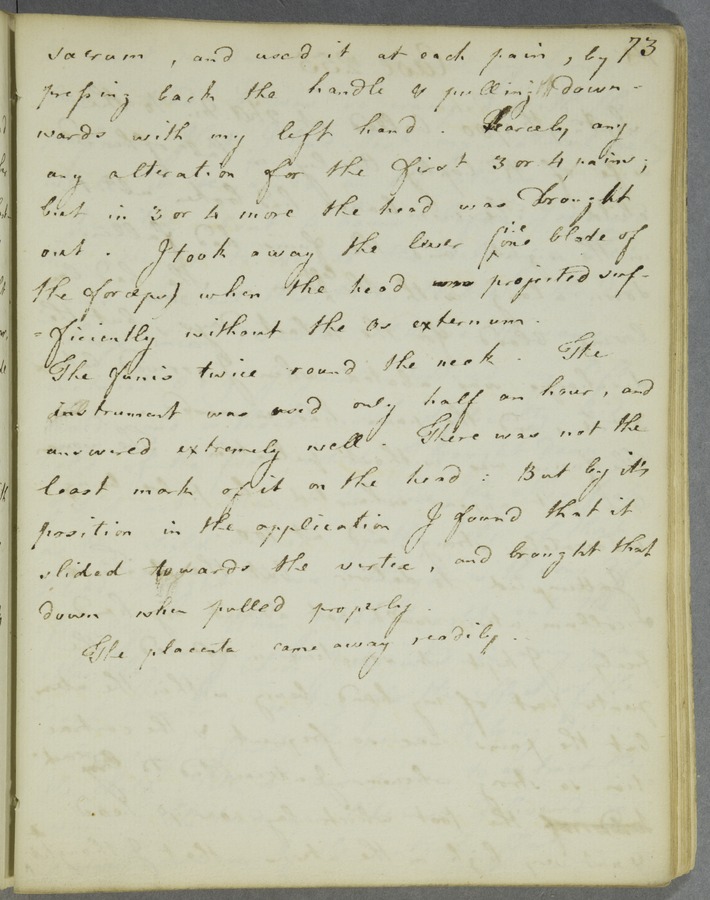 73
sacrum , and used it at each pain , by
pressing back the handle & pulling down-
wards with my left hand . Scarcely any
any alteration for the first 3 or 4 pains ;
but in 3 or 4 more the head was brought
out . I took away the lower (i.e. one blade of
the forceps) when the head projected suf-
=ficiently without the os externum .
The funis twice round the neck . The
instrument was used only half an hour , and
answered extremely well . There was not the
least mark of it on the head : But by it's
position in the application I found that it
slided towards the vertex , and brought that
down when pulled properly .
The placenta came away readily .